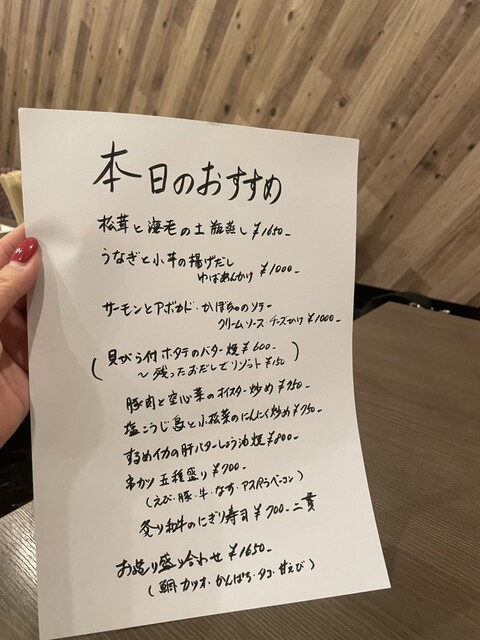 本日のおすすめ
松茸と海老の土瓶蒸し ¥1650-
うなぎと小芋の揚げだし
ゆばあんかけ ¥1000-
サーモンとアボカド・かぼちゃのソテー
クリームソース・チーズかけ ¥1000-
(貝がら付ホタテのバター焼 ¥600-
〜残ったおだしでリゾット ¥150)
豚肉と空心菜のオイスター炒め ¥750-
塩こうじ鳥と小松菜のにんにく炒め ¥750-
するめイカの肝バターしょう油焼 ¥800-
串カツ 五種盛り ¥700-
(えび・豚・牛・なす・アスパラベーコン)
炙り和牛のにぎり寿司 ¥700- 二貫
お造り盛り合わせ ¥1650-
(鯛 カツオ・かんぱち・タコ・甘えび)